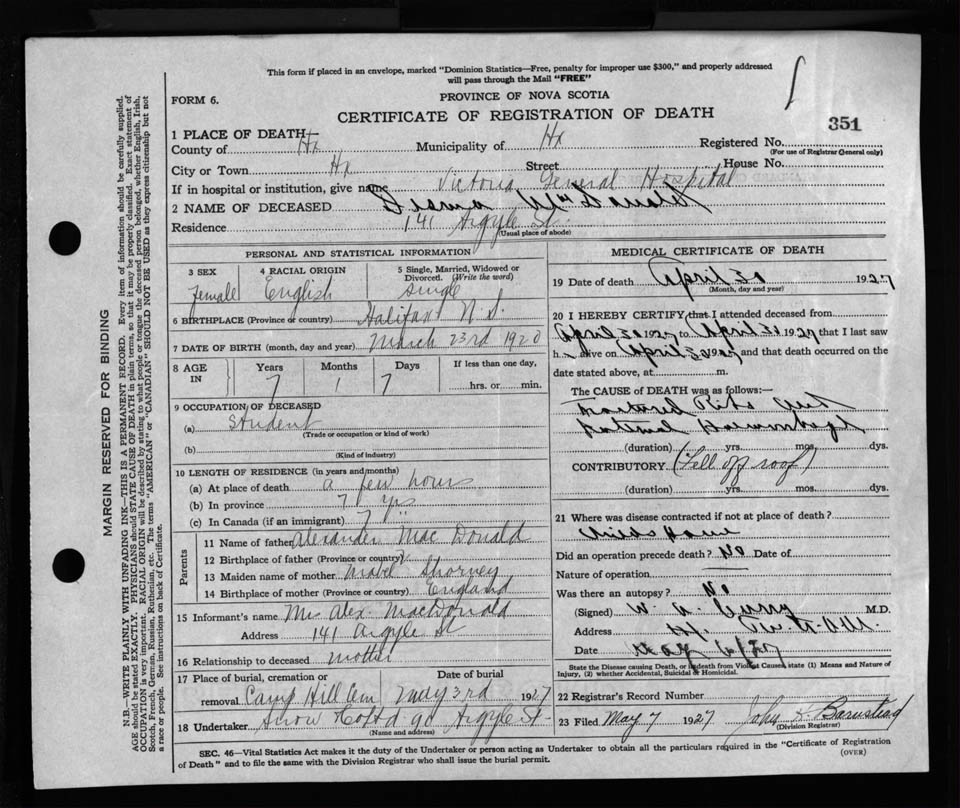 This form if placed in an envelope, marked "Dominion Statistics—Free, penalty for improper use $300," and properly addressed
will pass through the Mail "FREE"
FORM 6.
PROVINCE OF NOVA SCOTIA
CERTIFICATE OF REGISTRATION OF DEATH
351
1 PLACE OF DEATH
County of Hx Municipality of Hx Registered No.
(For use of Registrar General only)
City or Town Hx Street House No.
If in hospital or institution, give name Victoria General Hospital
2 NAME OF DECEASED McDonald
Residence 141 Argyle St.
(Usual place of abode)
PERSONAL AND STATISTICAL INFORMATION
3 SEX 4 RACIAL ORIGIN 5 Single, Married, Widowed or
Divorced. (Write the word)
female English single
6 BIRTHPLACE (Province or country) Halifax N.S.
7 DATE OF BIRTH (month, day and year) March 23rd 1920
8 AGE IN Years Months Days If less than one day,
7 1 7 hrs. or min.
9 OCCUPATION OF DECEASED
(a) Student
(Trade or occupation or kind of work)
(b)
(Kind of industry)
10 LENGTH OF RESIDENCE (in years and months)
(a) At place of death a few hours
(b) In province 7 yrs
(c) In Canada (if an immigrant) 7
Parents
11 Name of father Alexander Mac Donald
12 Birthplace of father (Province or country)
13 Maiden name of mother Mabel
14 Birthplace of mother (Province or country) England
15 Informant's name Mrs Alex. MacDonald
Address 141 Argyle St
16 Relationship to deceased mother
17 Place of burial, cremation or Date of burial
removal Camp Hill Cem May 3rd 1927
18 Undertaker Snow & Co Ltd 90 Argyle St.
(Name and address)
MEDICAL CERTIFICATE OF DEATH
19 Date of death April 30 1927
(Month, day and year)
20 I HEREBY CERTIFY that I attended deceased from
April 30 1927 to April 30 1927 that I last saw
h alive on April 30 1927 and that death occurred on the
date stated above, at m.
The CAUSE of DEATH was as follows:—
Fractured Ribs and
Internal Haemorrhage
(duration) yrs. mos. dys.
CONTRIBUTORY (Fell off roof)
(duration) yrs. mos. dys.
21 Where was disease contracted if not at place of death?
Did an operation precede death? No Date of
Nature of operation
Was there an autopsy? No
(Signed) W. A. Curry M.D.
Address
Date May 6/27
State the Disease causing Death, or in death from Violent Causes, state (1) Means and Nature of
Injury, (2) whether Accidental, Suicidal or Homicidal.
22 Registrar's Record Number
23 Filed May 7 1927 John K Barnstead
(Division Registrar)
SEC. 46—Vital Statistics Act makes it the duty of the Undertaker or person acting as Undertaker to obtain all the particulars required in the "Certificate of Registration
of Death" and to file the same with the Division Registrar who shall issue the burial permit.
(OVER)
MARGIN RESERVED FOR BINDING
N.B.—WRITE PLAINLY WITH UNFADING INK—THIS IS A PERMANENT RECORD. Every item of information should be carefully supplied.
AGE should be stated EXACTLY. PHYSICIANS should STATE CAUSE OF DEATH in plain terms, so that it may be properly classified. Exact statement of
OCCUPATION is very important. RACIAL ORIGIN will be described by stating to what people or tongue the deceased person belonged, whether English, Irish,
Scotch, French, German, Russian, Ruthenian, etc. The terms "AMERICAN" or "CANADIAN" SHOULD NOT BE USED as they express citizenship but not
a race or people. See instructions on back of Certificate.